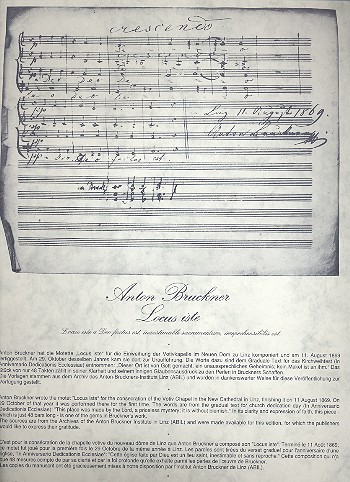 crescendo
Linz 11. August 1869.
Anton Bruckner
Anton Bruckner
Locus iste
Locus iste a Deo factus est, inaestimabile sacramentum, irreprehensibilis est.
Anton Bruckner hat die Motette „Locus iste" für die Einweihung der Votivkapelle im Neuen Dom zu Linz komponiert und am 11. August 1869
fertiggestellt. Am 29. Oktober desselben Jahres kam sie dort zur Uraufführung. Die Worte dazu sind dem Graduale Text für das Kirchweihfest (in
Anniversario Dedicationis Ecclesiae) entnommen: „Dieser Ort ist von Gott gemacht, ein unaussprechliches Geheimnis; kein Makel ist an ihm." Das
Stück von 48 Takten zählt in seiner Klarheit und seinem innigen Glaubensausdruck zu den Perlen in Bruckners Schaffen.
Die Vorlagen stammen aus dem Archiv des Anton Bruckner-Instituts Linz (ABIL) und wurden in dankenswerter Weise für diese Veröffentlichung zur
Verfügung gestellt.
Anton Bruckner wrote the motet "Locus iste" for the consecration of the Votiv Chapel in the New Cathedral in Linz, finishing it on 11 August 1869. On
29 October of that year it was performed there for the first time. The words are from the gradual text for church dedication day (In Anniversario
Dedicationis Ecclesiae): "This place was made by the Lord, a priceless mystery; it is without blemish." In its clarity and expression of faith, this piece,
which is just 48 bars long - is one of the gems in Bruckner's work.
The sources are from the Archives of the Anton Bruckner Institute in Linz (ABIL) and were made available for this edition, for which the publishers
would like to express their gratitude.
C'est pour la consécration de la chapelle votive du nouveau dôme de Linz que Anton Bruckner a composé son "Locus iste". Terminé le 11 Août 1869,
le motet fut joué pour la première fois le 29 Octobre de la même année à Linz. Les paroles sont tirées du verset graduel pour l'anniversaire d'une
église, "in Anniversario Dedicationis Ecclesiae": "Cette église faite par Dieu est un lieu saint, inestimable et sans reproche." Cette composition qui n'a
que 48 mesures compte de par sa clarté et par la foi profonde qu'elle exhalte parmi les perles de l'œuvre de Bruckner.
Les copies du manuscrit ont été gracieusement mises à notre disposition par l'Institut Anton Bruckner de Linz (ABIL).